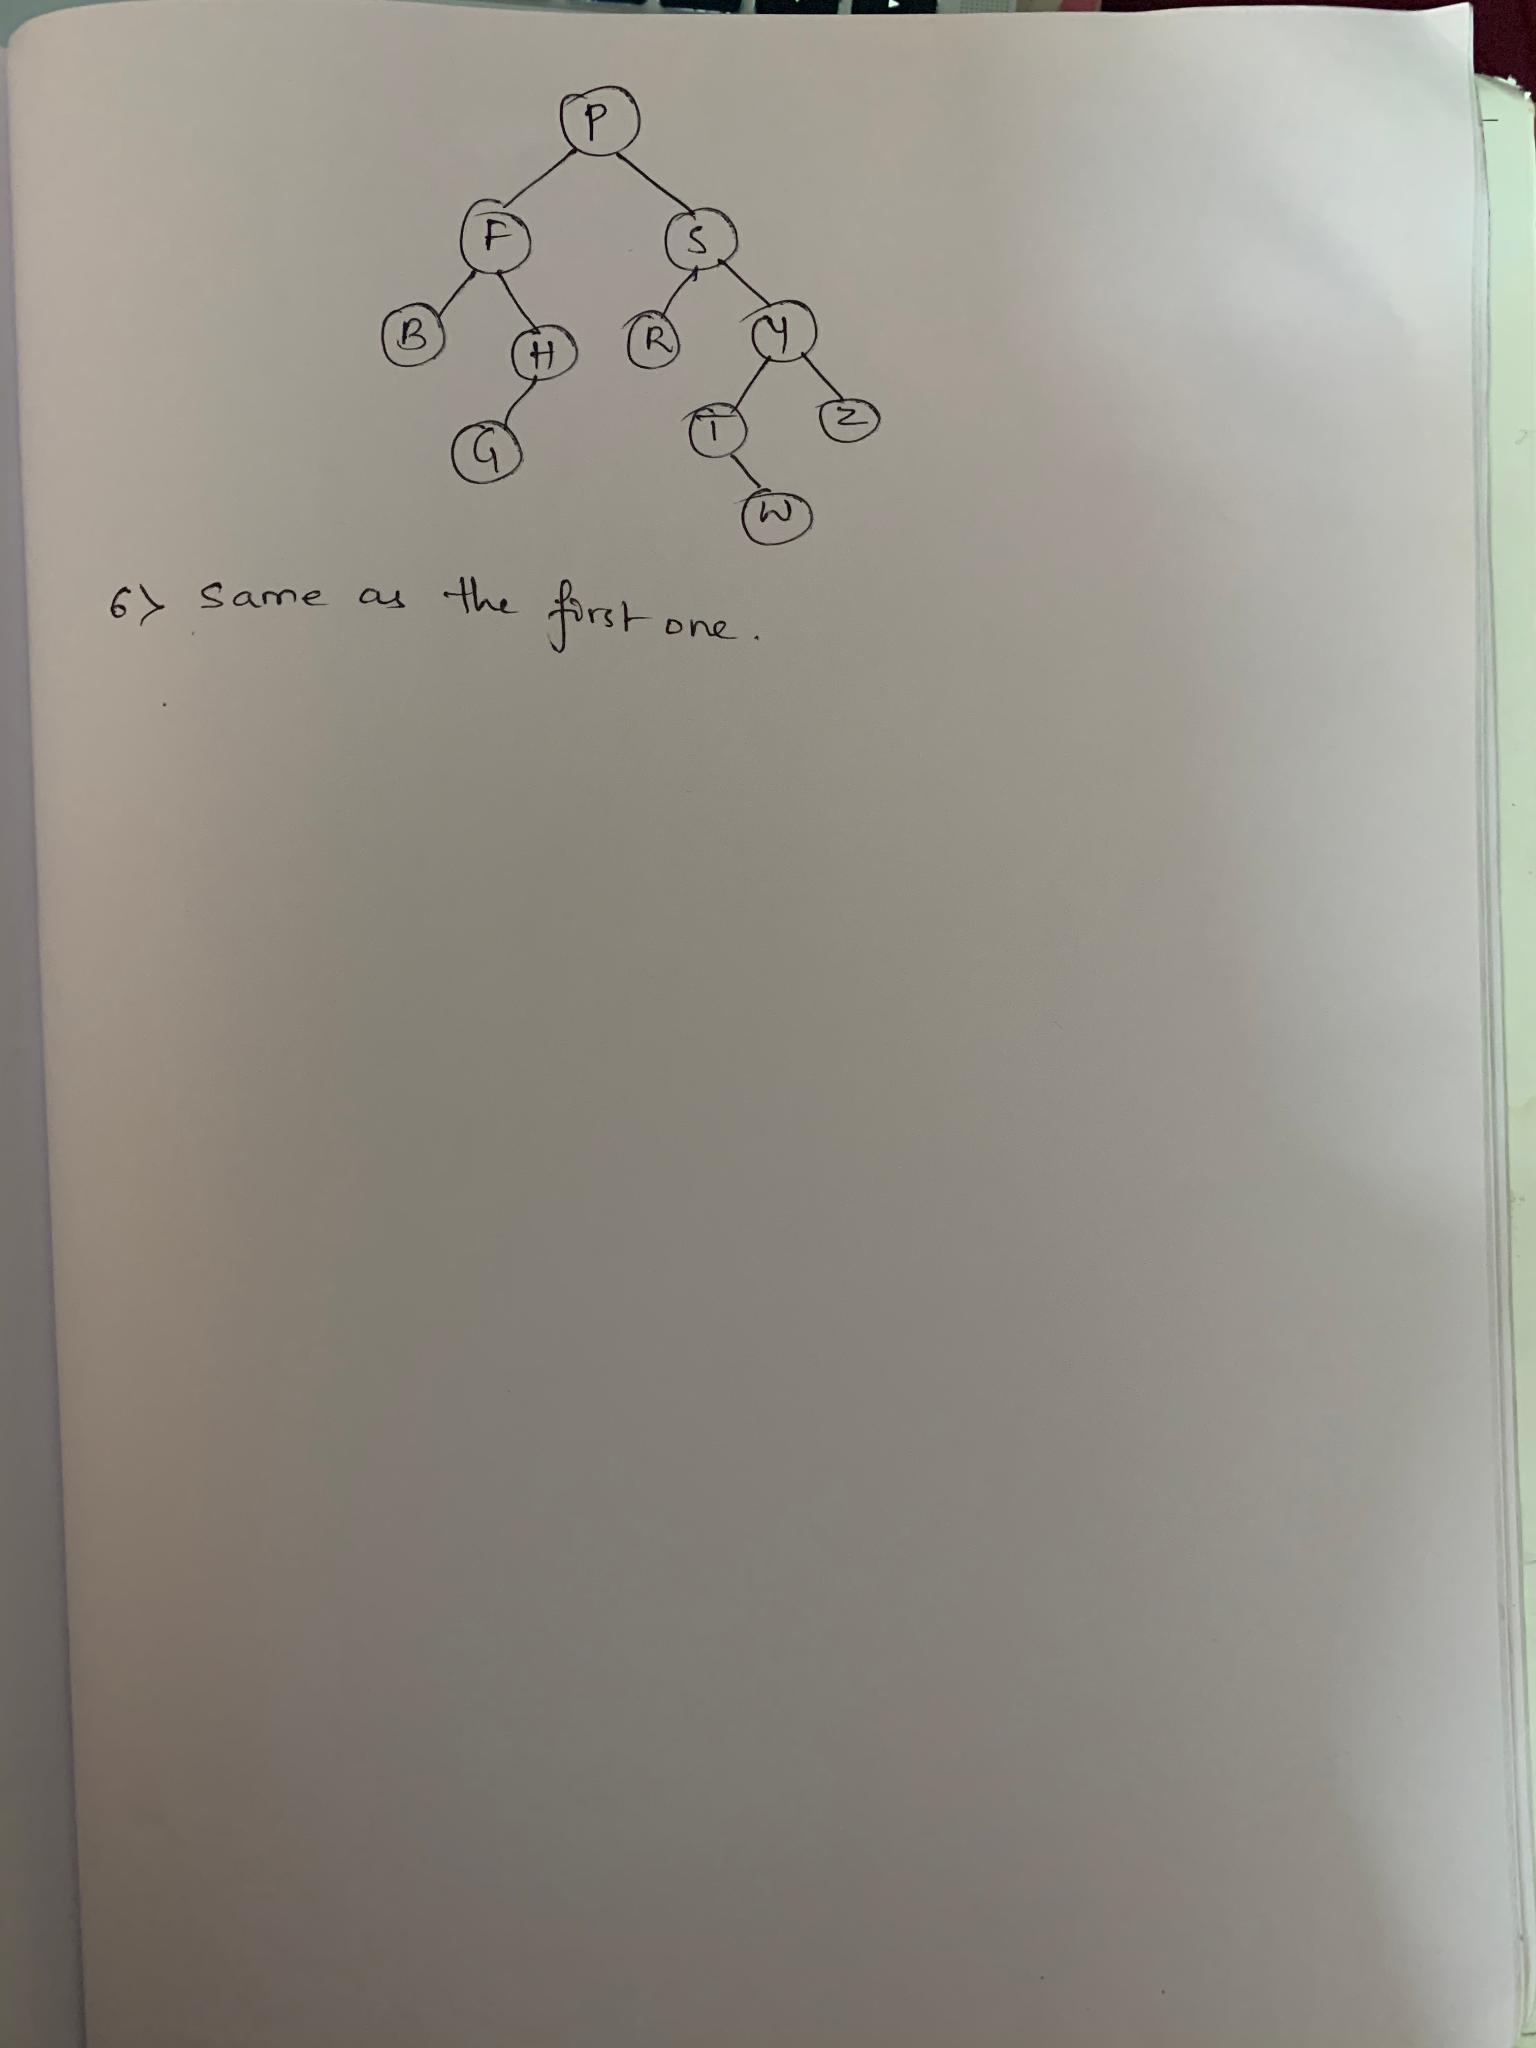 P
F S
B H R Y
G T Z
W
6> Same as the first one.